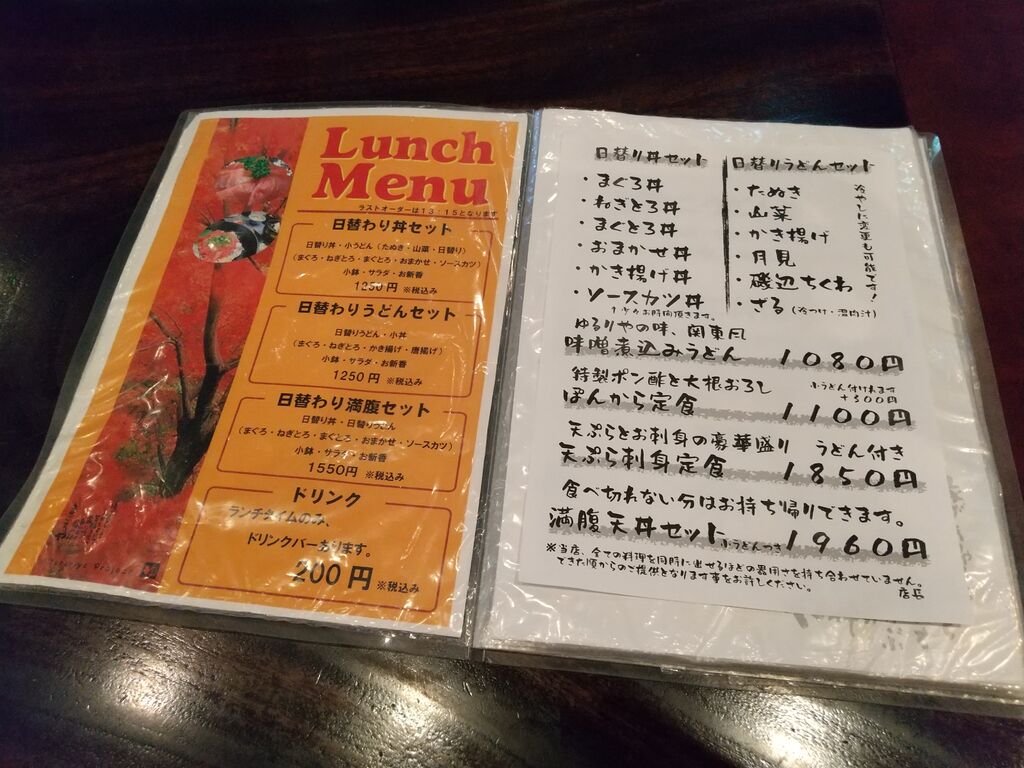 Lunch
Menu
ラストオーダーは13:15となります
日替わり丼セット
日替り丼・小うどん（たぬき・山菜・日替り）
（まぐろ・ねぎとろ・まぐとろ・おまかせ・ソースカツ）
小鉢・サラダ・お新香
1250円 ※税込み
日替わりうどんセット
日替りうどん・小丼
（まぐろ・ねぎとろ・かき揚げ・唐揚げ）
小鉢・サラダ・お新香
1250円 ※税込み
日替わり満腹セット
日替り丼・日替りうどん
（まぐろ・ねぎとろ・まぐとろ・おまかせ・ソースカツ）
小鉢・サラダ・お新香
1550円 ※税込み
ドリンク
ランチタイムのみ、
ドリンクバーあります。
200円 ※税込み
日替り丼セット
・まぐろ丼
・ねぎとろ丼
・まぐとろ丼
・おまかせ丼
・かき揚げ丼
・ソースカツ丼
↑少々お時間頂きます。
日替りうどんセット
・たぬき
・山菜
・かき揚げ
・月見
・磯辺ちくわ
・ざる（冷つけ・温肉汁）
冷やしに変更も可能です！
ゆるりやの味、関東風
味噌煮込みうどん 1080円
特製ポン酢と大根おろし
ぽんから定食 1100円
小うどん付けれます
+300円
天ぷらとお刺身の豪華盛り うどん付き
天ぷら刺身定食 1850円
食べ切れない分はお持ち帰りできます。
満腹天丼セット 小うどんつき 1960円
※当店、全ての料理を同時に出せるほどの器用さを持ち合わせていません。
できた順からのご提供となります事をお許しください。
店長